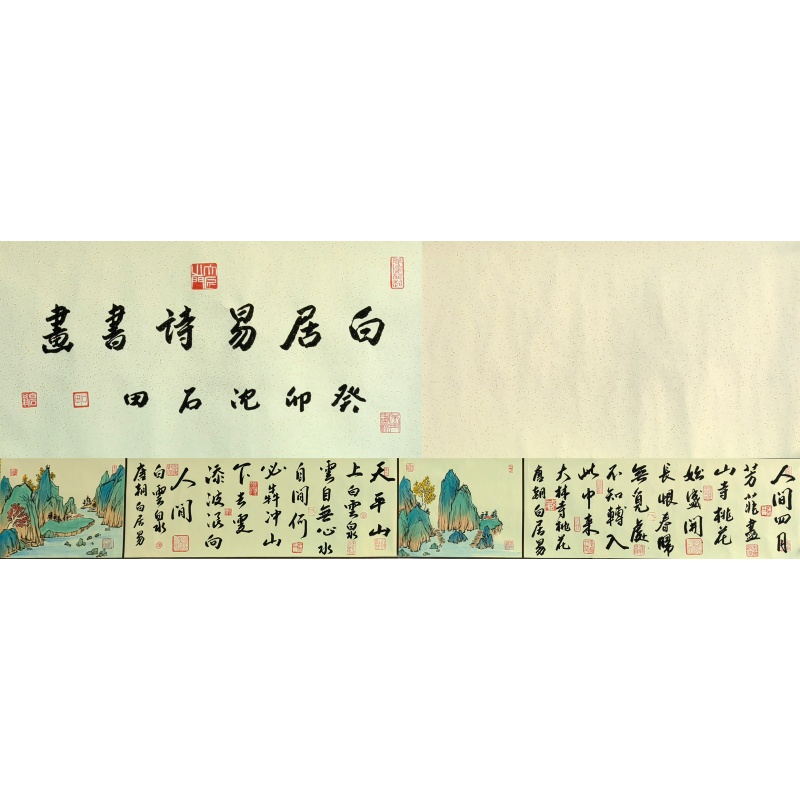 白居易诗書畫
癸卯沈石田
人间四月
芳菲盡
山寺桃花
始盛開
長恨春歸
無覓處
不知轉入
此中来
大林寺桃花
唐朝白居易
天平山
上白雲泉
雲自無心水
自间何
必奔冲山
下去更
添波浪向
人间
白雲泉
唐朝白居易